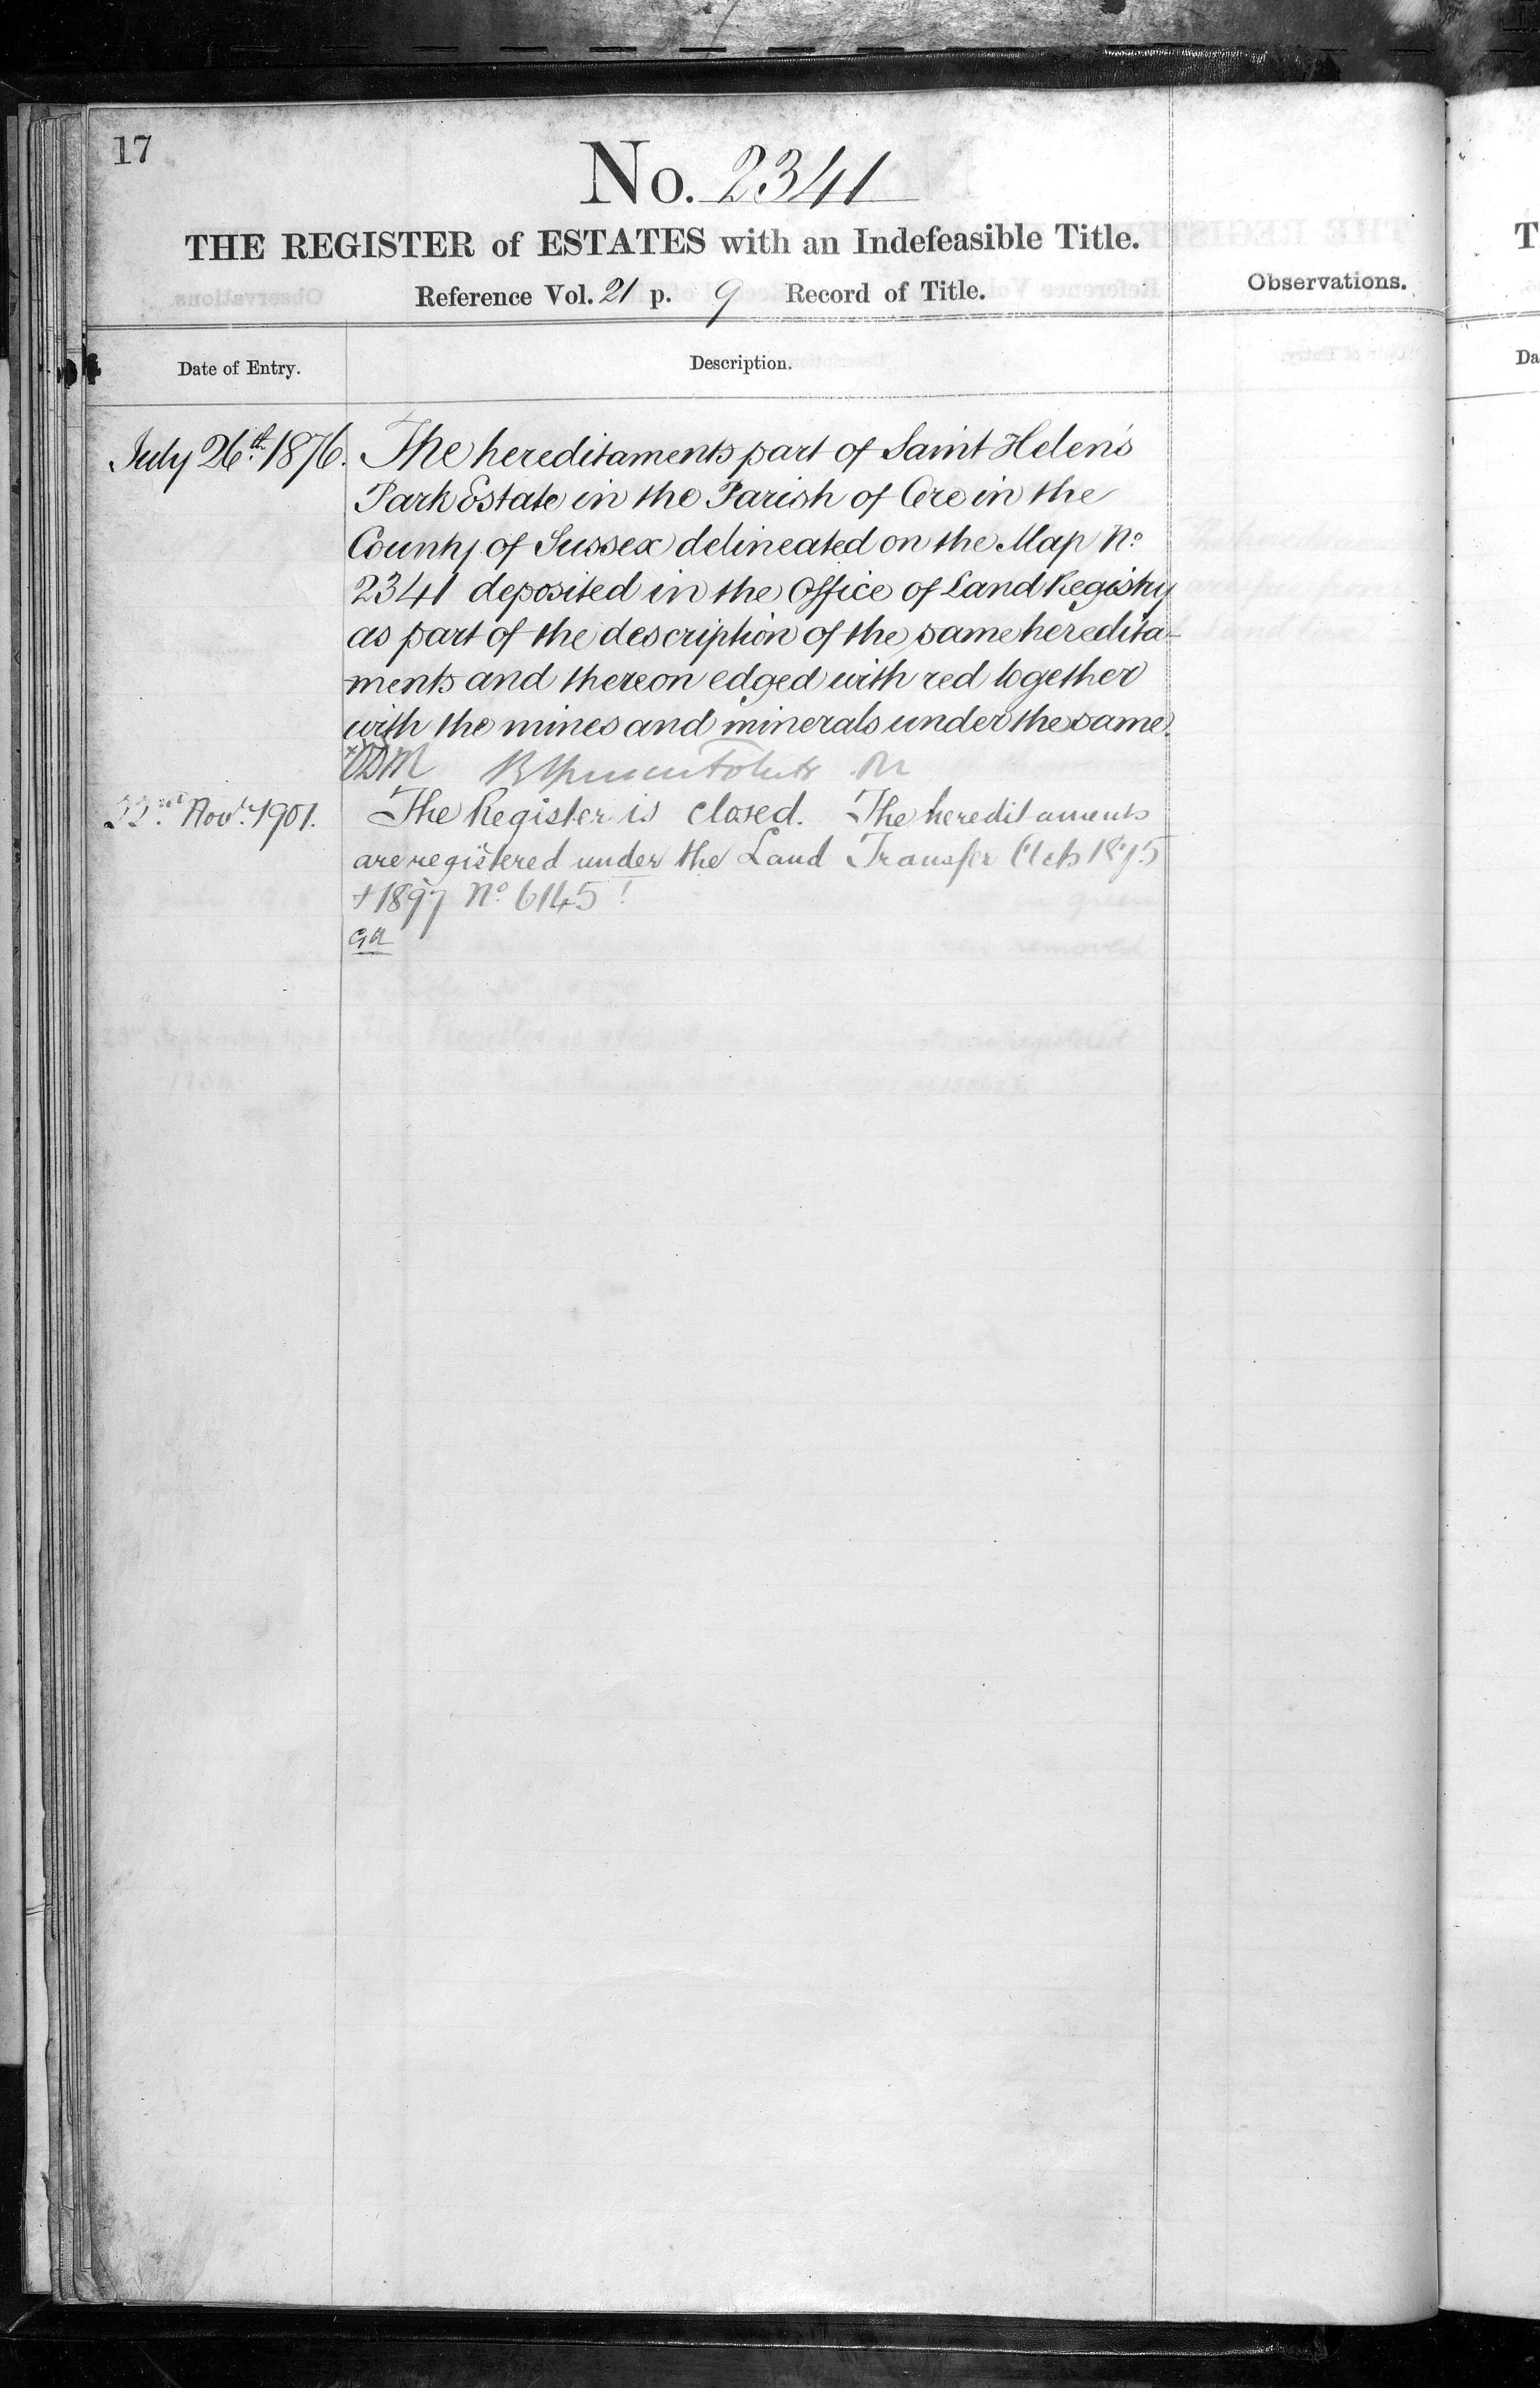 17
No. 2341
THE REGISTER of ESTATES with an Indefeasible Title.
Reference Vol. 21 p. 9 Record of Title.
Observations.
Date of Entry.
Description.
July 26th 1876. The hereditaments part of Saint Helen's
Park Estate in the Parish of Ore in the
County of Sussex delineated on the Map No
2341 deposited in the Office of Land Registry
as part of the description of the same heredita-
ments and thereon edged with red together
with the mines and minerals under the same.
22nd Novr. 1901. The Register is closed. The hereditaments
are registered under the Land Transfer Acts 1875
+ 1897 No 6145
GA
T
Da